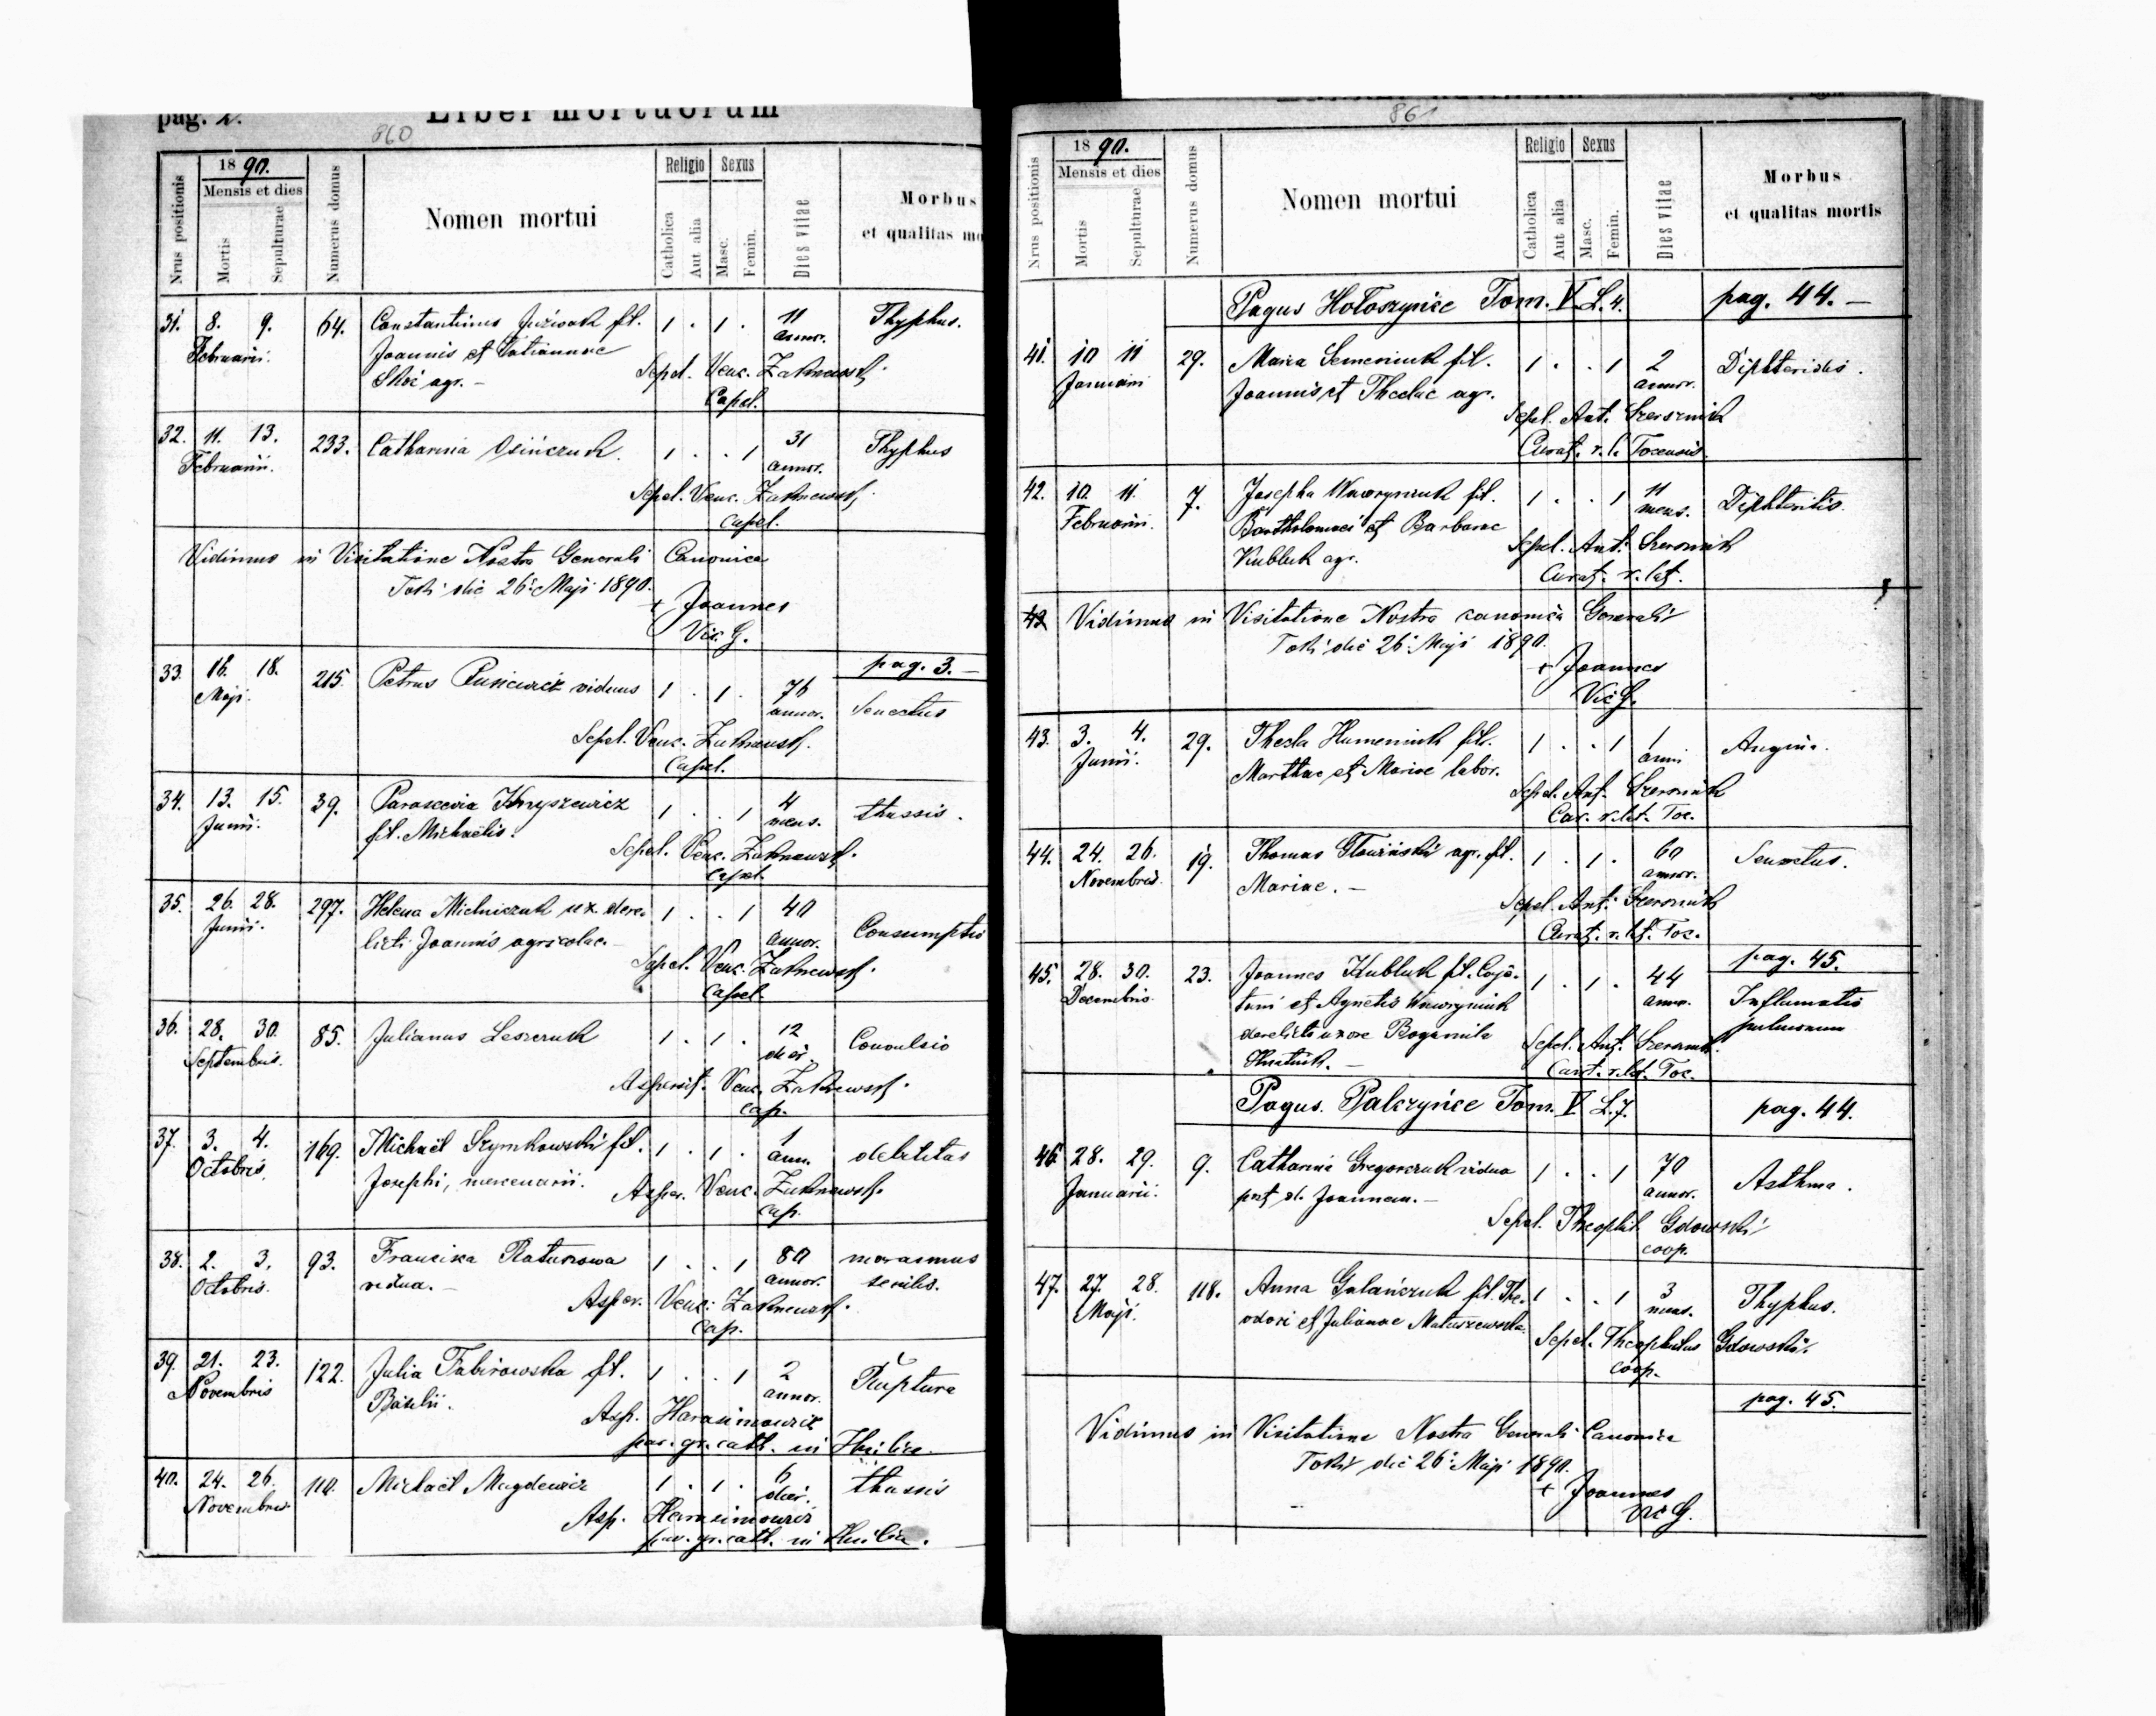 pag. 2.
Liber mortuorum
860
Nrus positionis
1890.
Mensis et dies
Mortis
Sepulturae
Numerus domus
Nomen mortui
Religio
Catholica
Aut alia
Sexus
Masc.
Femin.
Dies vitae
Morbus
et qualitas mo
31. 8. 9. 64. Constantinus Juźwak fil. 1 . 1 . 11 Thyphus.
Februarii. Joannis et Tatiannae annor.
agr. — Sepel. Venc. Zakrzewski
Capel.
32. 11. 13. 233. Catharina Osińczuk 1 . . 1 31 Thyphus
Februarii. annor.
Sepel. Venc. Zakrzewski
capel.
Vidimus in Visitatione Nostra Generali Canonica
Toki die 26. Maji 1890.
+ Joannes
Vic. G.
pag. 3. —
33. 16. 18. 215. Petrus viduus 1 . 1 . 76 Senectus
Maji. annor.
Sepel. Venc. Zakrzewski.
Capel.
34. 13. 15. 39. Parascevia 1 . . 1 4 thussis.
Junii. fil. Michaelis. mens.
Sepel. Venc. Zakrzewski.
Capel.
35. 26. 28. 297. Helena Mielniczuk ux. dere- 1 . . 1 40 Consumptio
Junii. licti Joannis agricolae. — annor.
Sepel. Venc. Zakrzewski.
Capel.
36. 28. 30. 85. Julianus Leszczuk 1 . 1 . 12 Convulsio
Septembris. dier.
Aspersit. Venc. Zakrzewski.
cap.
37. 3. 4. 169. Michaël Szymkowski fil. 1 . 1 . 1 debilitas
Octobris. Josephi, mercenarii. ann.
Asper. Venc. Zakrzewski.
cap.
38. 2. 3. 93. Francisca Ratusowa 1 . . 1 80 marasmus
Octobris. vidua. — annor. senilis.
Asper. Venc. Zakrzewski.
Cap.
39. 21. 23. 122. Julia fil. 1 . . 1 2 Ruptura
Novembris Basilii. annor.
Asp. Harasimowicz
par. gr. cath. in
40. 24. 26. 110. Michaël Magdewicz 1 . 1 . 6 thussis
Novembris dier.
Asp. Harasimowicz
par. gr. cath. in
861
Nrus positionis
1890.
Mensis et dies
Mortis
Sepulturae
Numerus domus
Nomen mortui
Religio
Catholica
Aut alia
Sexus
Masc.
Femin.
Dies vitae
Morbus
et qualitas mortis
Pagus Hołoszyńce Tom. V L. 4. pag. 44. —
41. 10 11 29. Maria Semeniuk fil. 1 . . 1 2 Diphteridis.
Januarii Joannis et Theclae agr. annor.
Sepel. Ant.
Curat. r. l. Tocensis.
42. 10. 11. 7. Josepha Wawryniuk fil. 1 . . 1 11 Diphteritis.
Februarii. Bartholomaei et Barbarae mens.
Kubluk agr. Sepel. Ant.
Curat. r. lat.
43 Vidimus in Visitatione Nostra canonica Generali
Toki die 26. Maji 1890.
+ Joannes
Vic G.
43. 3. 4. 29. Thecla Humeniuk fil. 1 . . 1 1 Angina.
Junii. et Mariae labor. anni
Sepel. Ant.
Cur. r. lat. Toc.
44. 24. 26. 19. Thomas agr. fil. 1 . 1 . 60 Senectus.
Novembris. Mariae. — annor.
Sepel. Ant.
Curat. r. lat. Toc.
pag. 45.
45. 28. 30. 23. Joannes Kubluk fil. Caje- 1 . 1 . 44 Inflamatio
Decembris. tani et Agnetis Wawryniuk anno. pulmonum
derelicta uxore Bogumila
Sepel. Ant.
Curat. r. lat. Toc.
Pagus. Palczyńce Tom. V L. 7. pag. 44.
46. 28. 29. 9. Catharina Gregorczuk vidua 1 . . 1 70 Asthma.
Januarii. post d. Joannem. — annor.
Sepel. Theophil. Gdowski
coop.
47. 27. 28. 118. Anna Galańczuk fil. The- 1 . . 1 3 Thyphus.
Maji. odori et Julianae Matuszewska mens.
Sepel. Theophilus Gdowski.
coop.
pag. 45.
Vidimus in Visitatione Nostra Generali Canonica
Toki die 26. Maji 1890.
+ Joannes
Vic G.